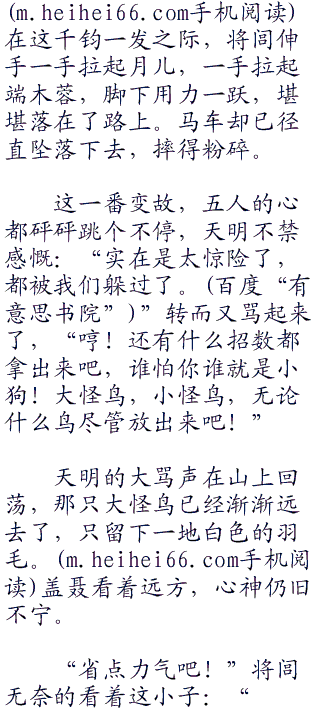 (m.heihei66.com手机阅读)
在这千钧一发之际，将闾伸
手一手拉起月儿，一手拉起
端木蓉，脚下用力一跃，堪
堪落在了路上。马车却已径
直坠落下去，摔得粉碎。
这一番变故，五人的心
都砰砰跳个不停，天明不禁
感慨：“实在是太惊险了，
都被我们躲过了。(百度“有
意思书院”)”转而又骂起来
了，“哼！还有什么招数都
拿出来吧，谁怕你谁就是小
狗！大怪鸟，小怪鸟，无论
什么鸟尽管放出来吧！”
天明的大骂声在山上回
荡，那只大怪鸟已经渐渐远
去了，只留下一地白色的羽
毛。(m.heihei66.com手机阅
读)盖聂看着远方，心神仍旧
不宁。
“省点力气吧！”将闾
无奈的看着这小子：“